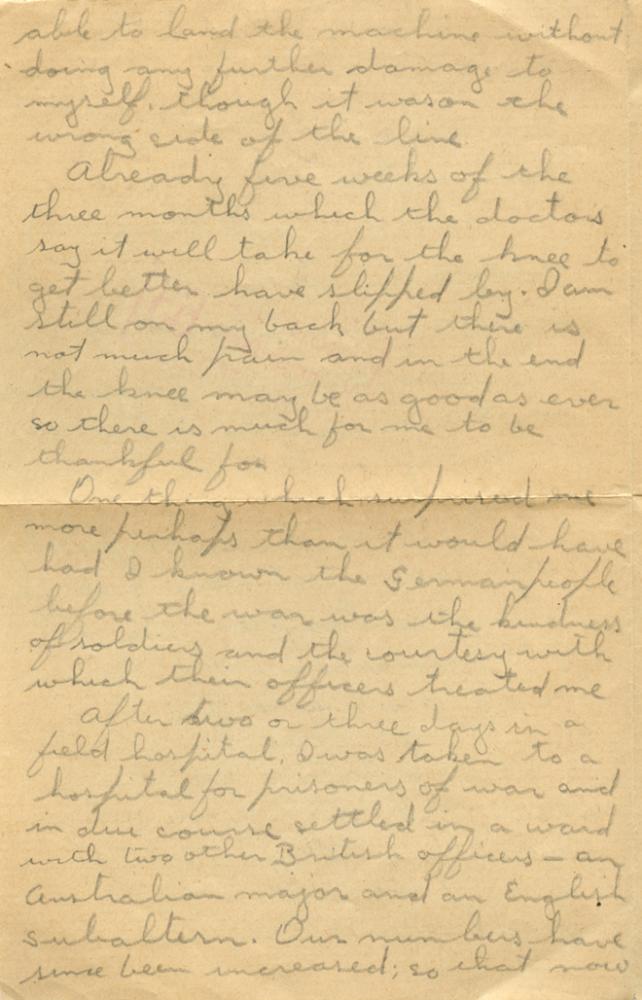 able to land the machine without
doing any further damage to
myself, though it was on the
wrong side of the line
Already five weeks of the
three months which the doctors
say it will take for the knee to
get better have slipped by. I am
still on my back but there is
not much pain and in the end
the knee may be as good as ever
so there is much for me to be
thankful for
One thing which surprised me
more perhaps than it would have
had I known the German people
before the war was the kindness
of soldiers and the courtesy with
which their officers treated me
After two or three days in a
field hospital, I was taken to a
hospital for prisoners of war and
in due course settled in a ward
with two other British officers – an
Australian major and an English
subaltern. Our numbers have
since been increased; so that now